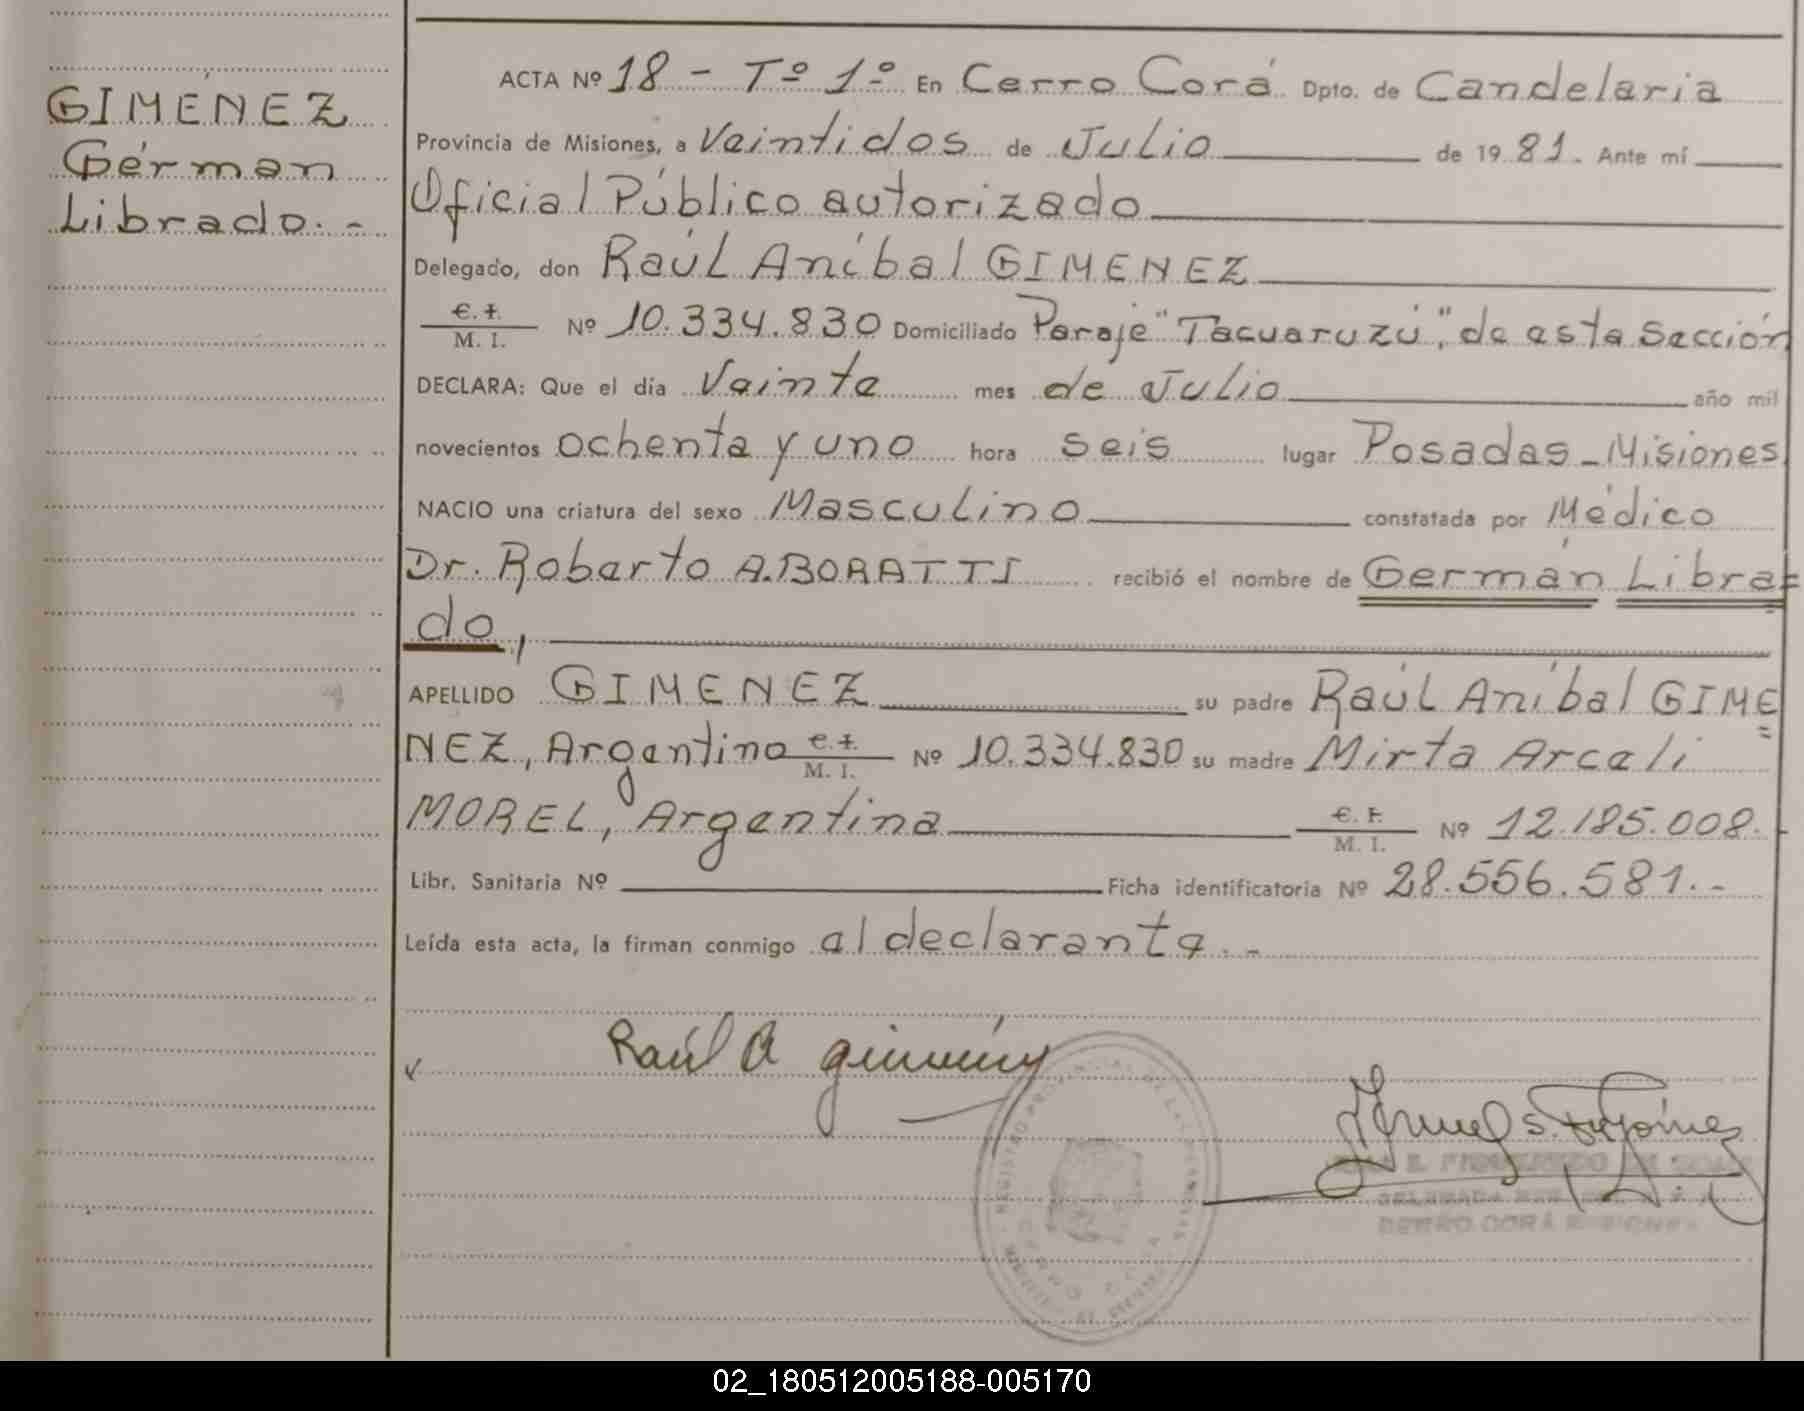 GIMÉNEZ
Gérman
Librado.-
ACTA Nº 18 - Tº 1º En Cerro Corá Dpto. de Candelaria
Provincia de Misiones, a Veintidos de Julio de 1981. Ante mí
Oficial Público autorizado
Delegado, don Raúl Aníbal GIMENEZ
C.I.
M. I. Nº 10.334.830 Domiciliado Paraje "Tacuaruzú", de esta Sección
DECLARA: Que el día Veinte mes de Julio año mil
novecientos ochenta y uno hora seis lugar Posadas - Misiones
NACIO una criatura del sexo Masculino constatada por Médico
Dr. Roberto A. BORATTI recibió el nombre de Germán Libra=
do,
APELLIDO GIMENEZ su padre Raúl Aníbal GIME=
NEZ, Argentino C.I. M. I. Nº 10.334.830 su madre Mirta Arceli
MOREL, Argentina C.I. M. I. Nº 12.185.008.-
Libr. Sanitaria Nº Ficha identificatoria Nº 28.556.581.-
Leída esta acta, la firman conmigo el declarante.-
Raúl A Giménez
REGISTRO PROVINCIAL DE LAS PERSONAS
CERRO CORÁ
02_180512005188-005170